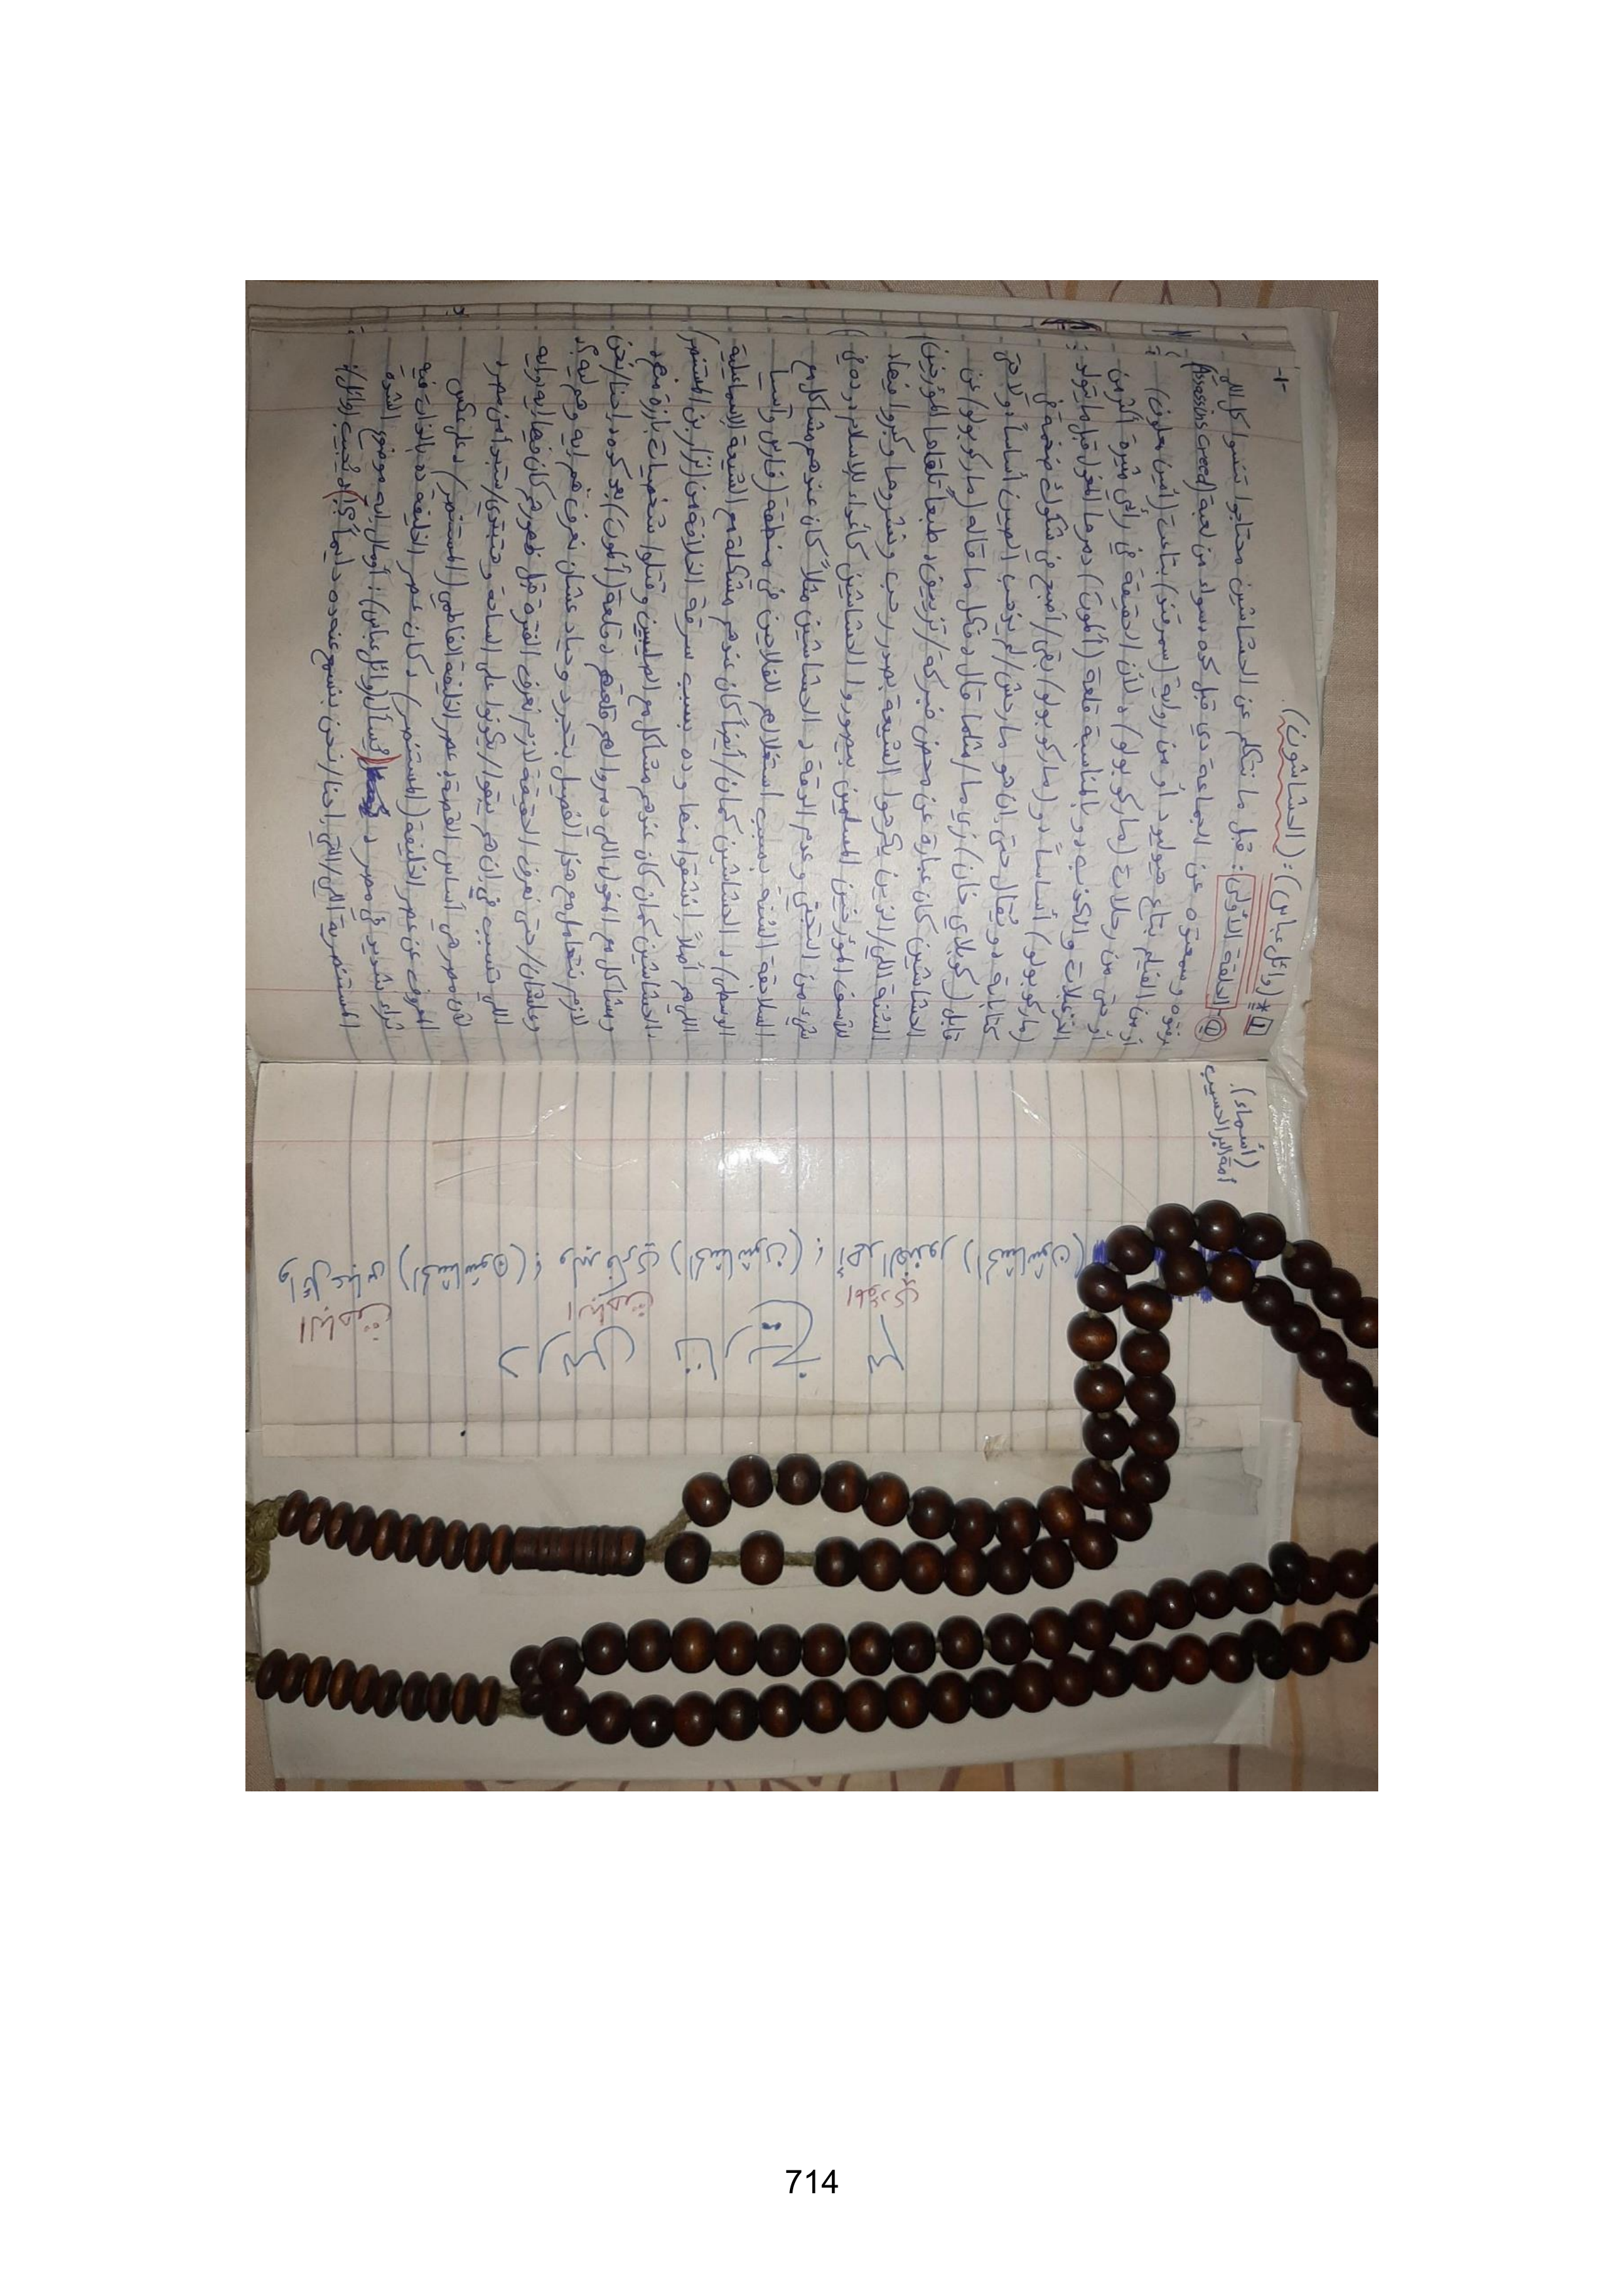 -١-
[١] * (وائل عباس): (الحشاشون).
① الحلقة الأولى: قبل ما نتكلم عن الحشاشين محتاجوا تنسوا كل اللي
عرفتوه وسمعتوه عن الجماعة دي قبل كده سواء من لعبة (Assassins Creed)
أو من الفيلم بتاع هوليود أو من رواية (سمرقند) بتاعت (أمين معلوف)
أو حتى من رحلات (ماركو بولو) د لأن الحقيقة في رأيي مثيرة أكتر من
الترهات والكذب دو بالمناسبة قلعة (ألموت) دمرها المغول قبل ما يتولد
(ماركو بولو) أساساً دو (ماركو بولو) بقى/أصبح في شكوك ضخمة في
كتاباته دو يُقال حتى إن هو ما رحش/لم يذهب الصين أساساً دولا حتى
قابل (كوبلاي خان) زي ما/مثلما قال دفكل ما قاله (ماركو بولو) عن
الحشاشين كان عبارة عن محض فبركة/تزييف د طبعاً تلقاها المؤرخين
السُنة اللي/الذين يكرهوا الشيعة بصدر رحب ونشروها وكبروا فيها د
للأسف المؤرخين المسلمين بيصوروا الحشاشين كأعداء للإسلام د وده في
شيء من التجني وعدم الدقة د الحشاشين مثلاً كان عندهم مشاكل مع
السلاجقة السُنة بسبب استغلالهم للفلاحين في منطقة (فارس وآسيا
الوسطى) د الحشاشين كمان/أيضاً كان عندهم مشكلة مع الشيعة الإسماعيلية
اللي هم أصلاً انشقوا منها وده بسبب سرقة الخلافة من (نزار بن المستنصر)
د الحشاشين كمان كان عندهم مشاكل مع الصليبيين وقتلوا شخصيات بارزة منهم
ومشاكل مع المغول اللي دمروا لهم قلعتهم د قلعة (ألموت) بعد كده د احنا/نحن
لازم نتعامل مع هذا الفصيل بتجرد وحياد عشان نعرف هم إيه وهم ليه؟
وعلشان/حتى نعرف الحقيقة لازم نعرف الفترة قبل ظهورهم كان فيها إيه وإيه
اللي تسبب في إن هم يبقوا/يكونوا على الساحة وهتبتدي/ستبدأ من مصر د
لأن مصر هي أساس القصة د عصر الخليفة الفاطمي (المستنصر) د على عكس
المعروف عن عصر الخليفة (المستنصر) د كان عصر الخليفة ده بالذات فيه
ثراء شديد في مصر د (يُسأل (وائل عباس): أومال إيه موضوع الشدة
المستنصرية اللي/التي احنا/نحن بنسمع عنه ده دايماً؟) د يُجيب (وائل):
(أسماء)
أمة البر الحسيب.
(الحشاشون) أحمد الغندور
(الحشاشون)؛ وليد فكري
(الحشاشون)؛ وائل عباس
الباطنية
الباطنية